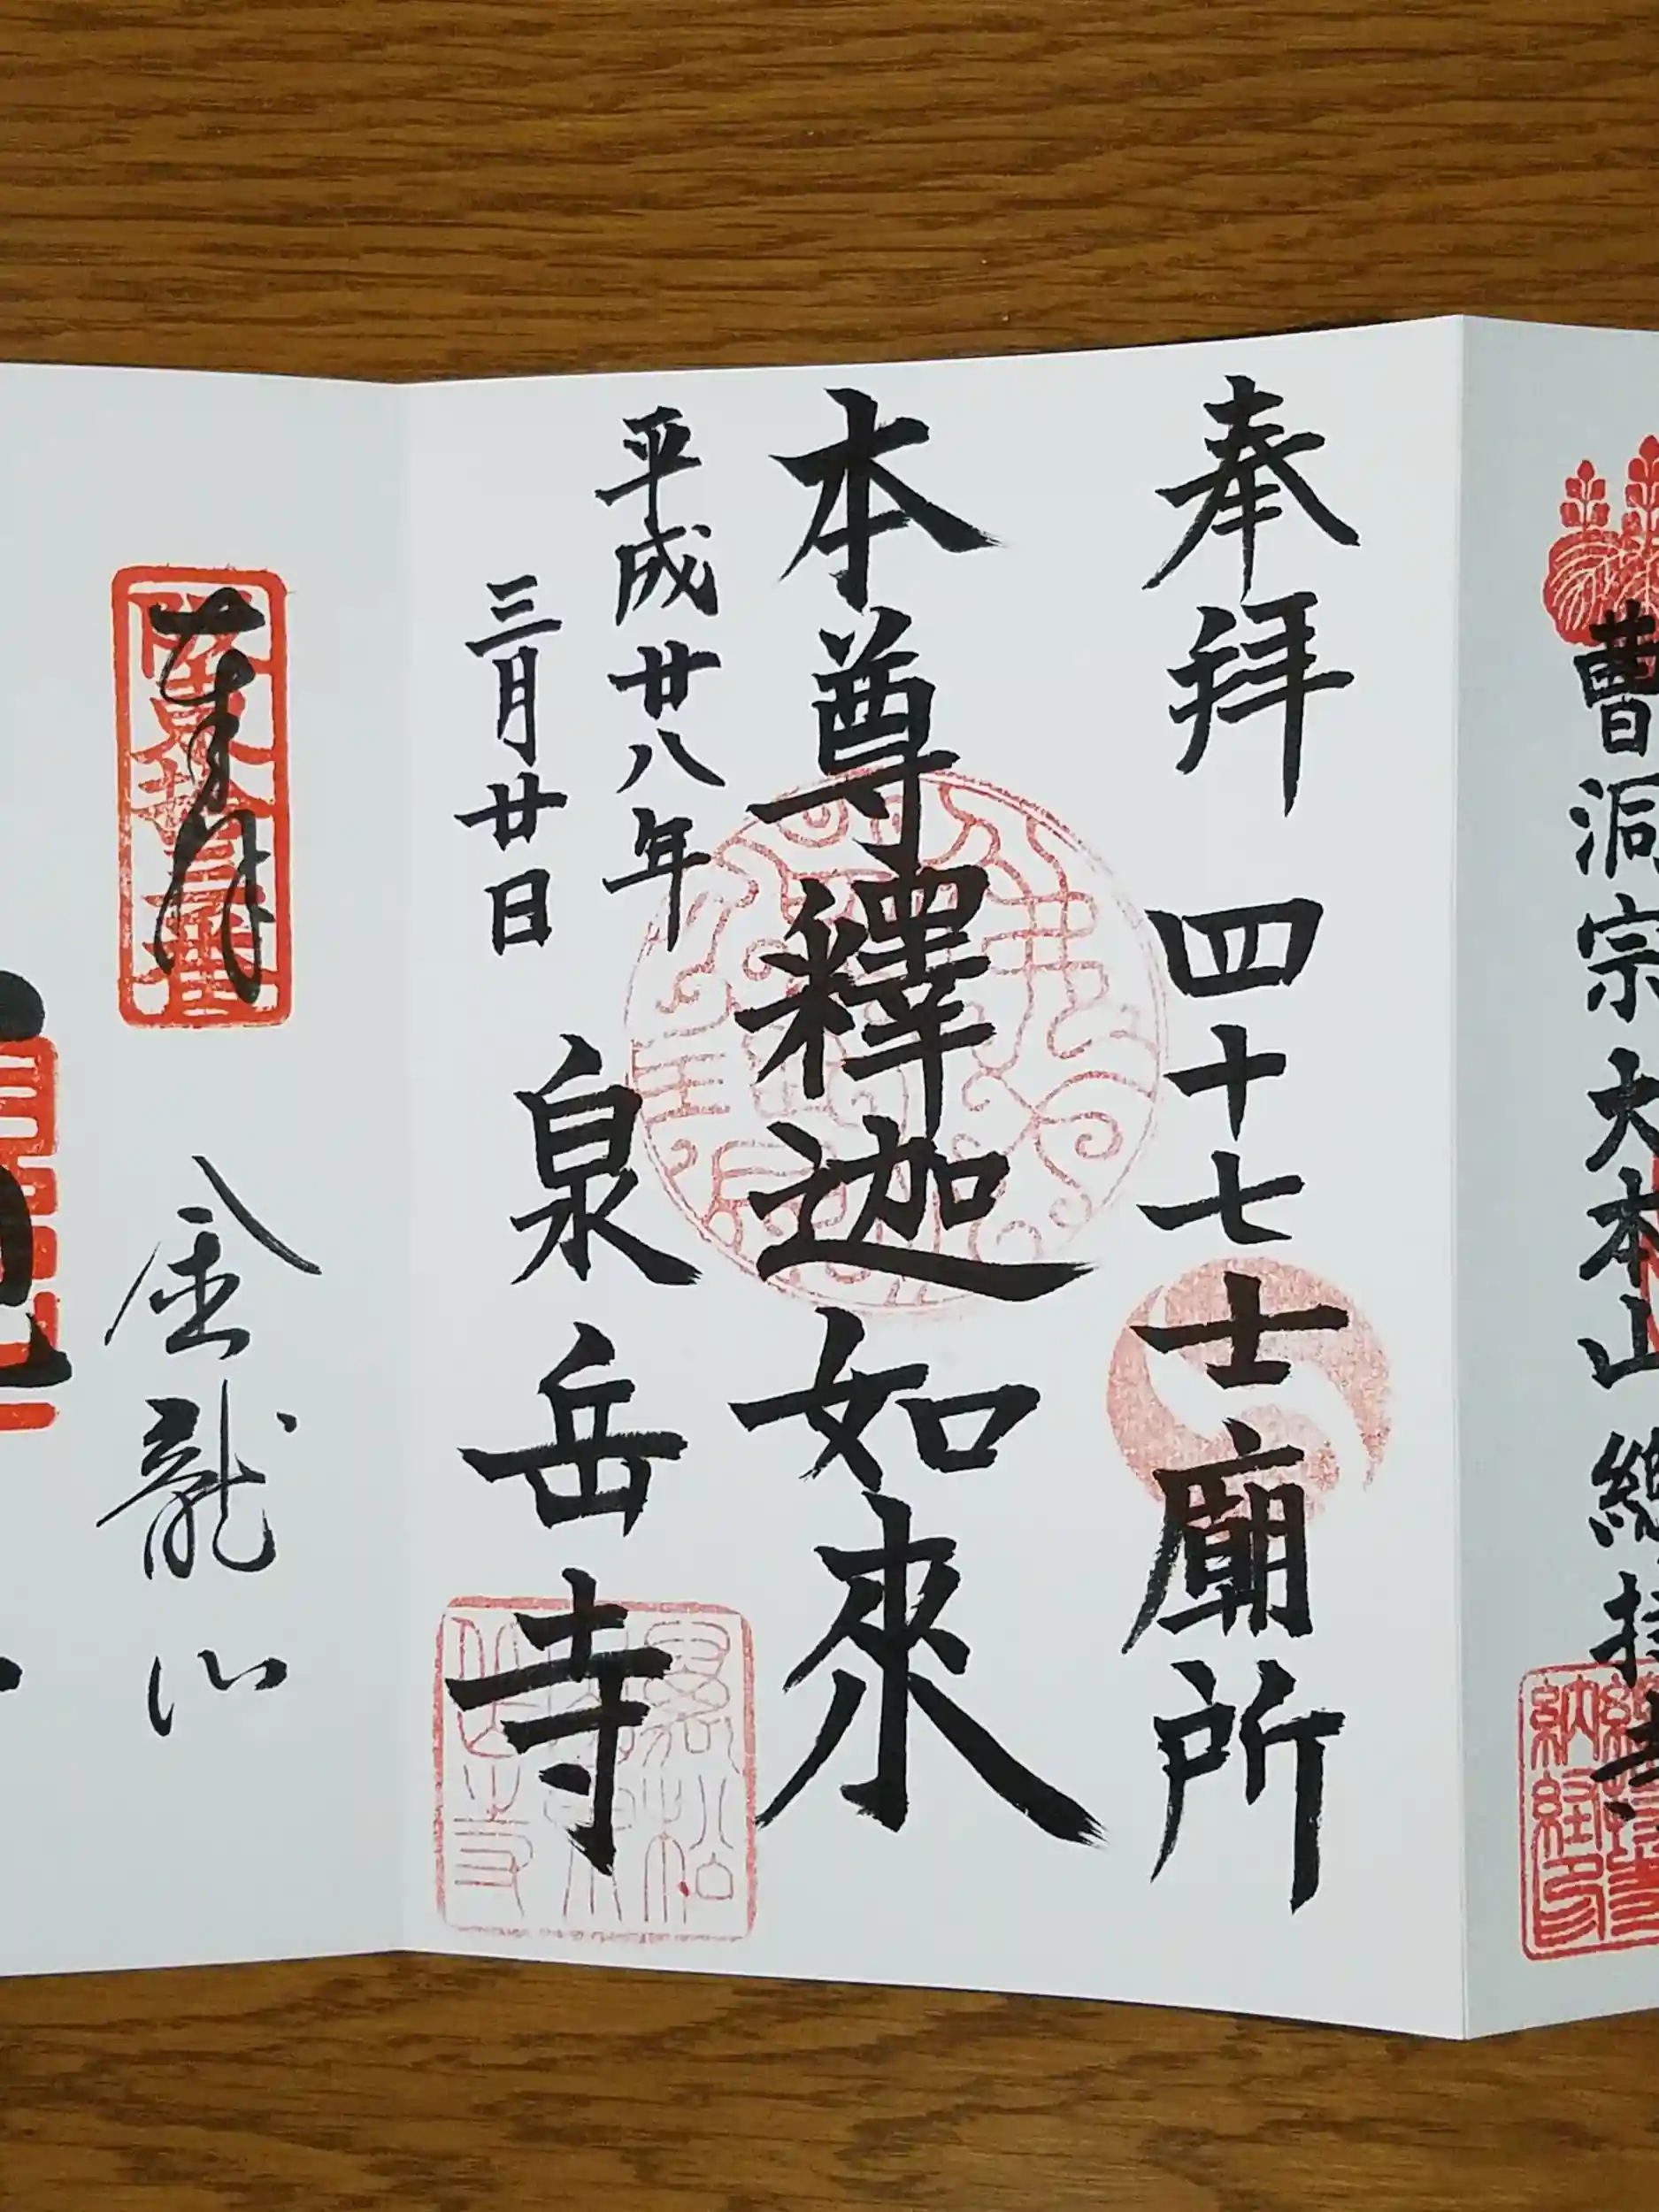 曹洞宗大本山總持寺
奉拝 四十七士廟所
本尊釋迦如來
平成廿八年
三月廿日
泉岳寺
奉拝
金龍山